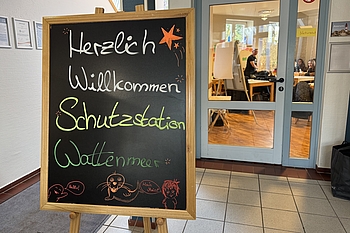 Herzlich
Willkommen
Schutzstation
Wattenmeer